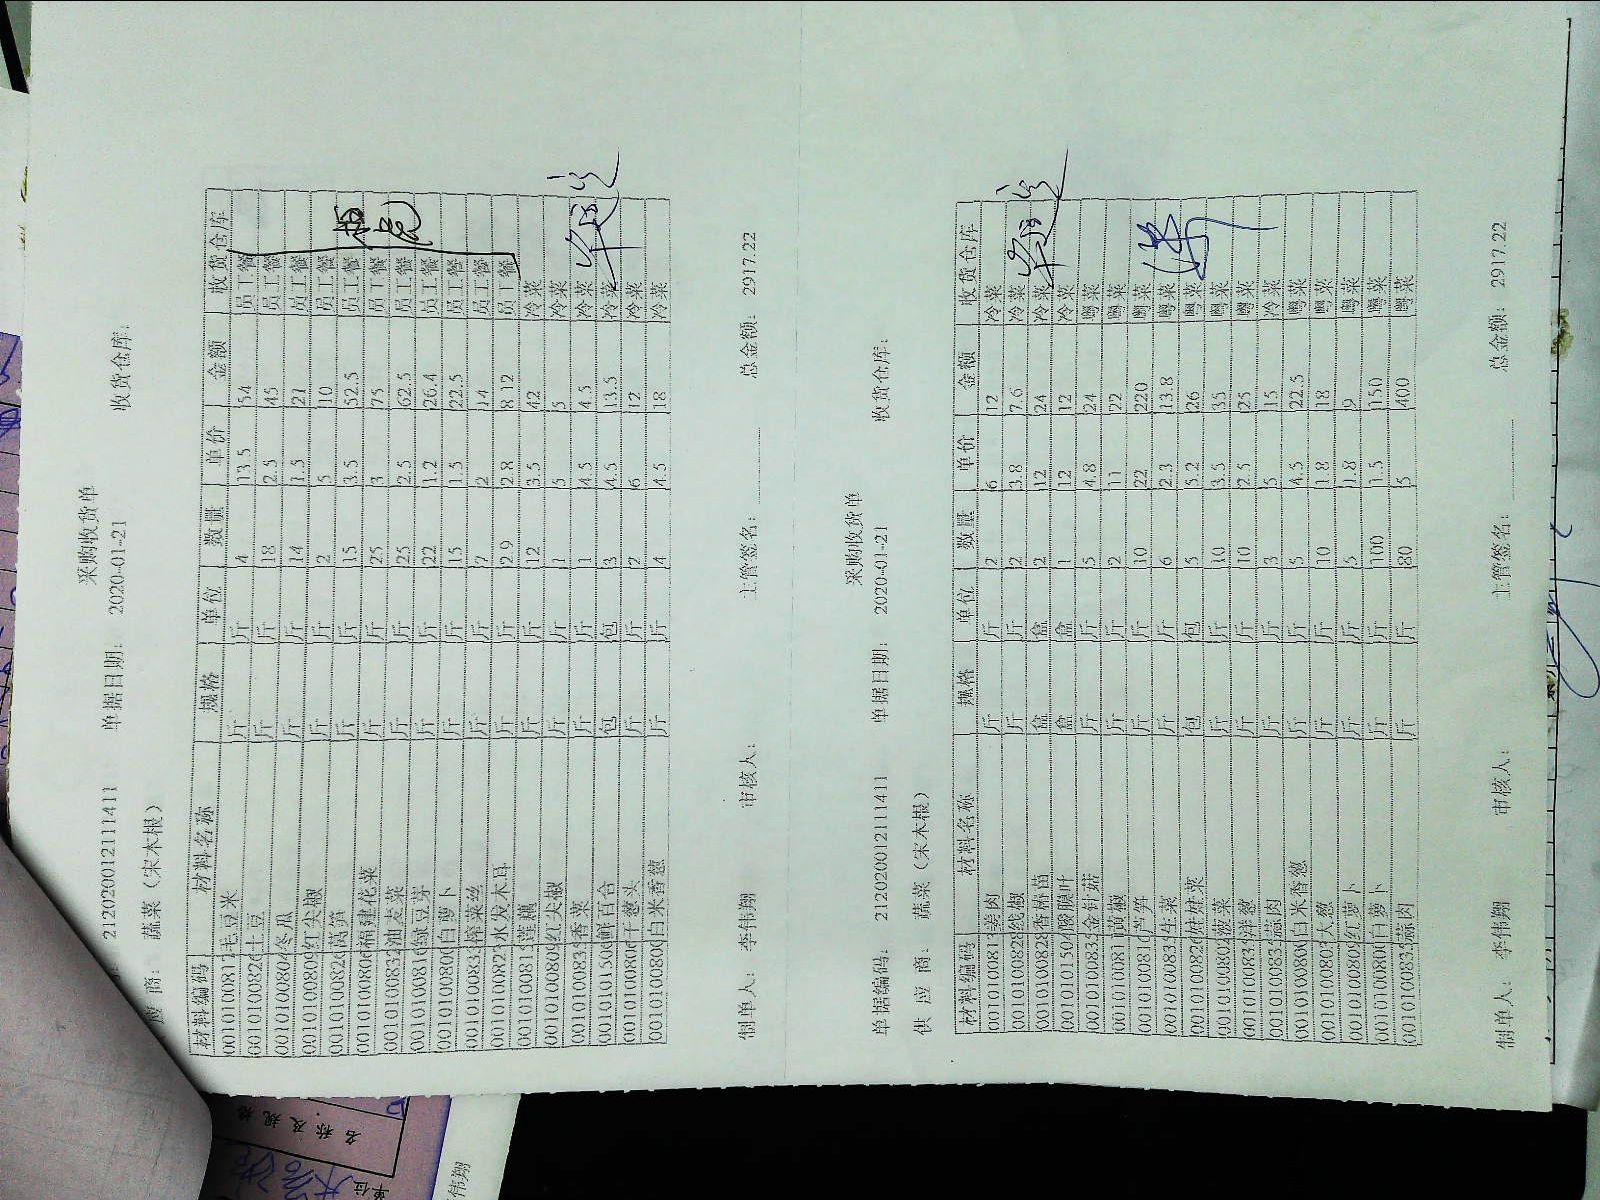 采购收货单
212020012111411 单据日期: 2020-01-21 收货仓库:
应 商: 蔬菜（宋木根）
材料编码 材料名称 规格 单位 数量 单价 金额 收货仓库
001010081 毛豆米 斤 斤 4 13.5 54 员工餐
0010100826 土豆 斤 斤 18 2.5 45 员工餐
0010100804 冬瓜 斤 斤 14 1.5 21 员工餐
0010100809 红尖椒 斤 斤 2 5 10 员工餐
0010100826 莴笋 斤 斤 15 3.5 52.5 员工餐
0010100806 福建花菜 斤 斤 25 3 75 员工餐
0010100832 油麦菜 斤 斤 25 2.5 62.5 员工餐
0010100816 绿豆芽 斤 斤 22 1.2 26.4 员工餐
0010100800 白萝卜 斤 斤 15 1.5 22.5 员工餐
0010100833 榨菜丝 斤 斤 7 2 14 员工餐
0010100082 水发木耳 斤 斤 2.9 2.8 8.12 员工餐
001010081 莲藕 斤 斤 12 3.5 42 冷菜
0010100809 红尖椒 斤 斤 1 5 5 冷菜
0010100835 香菜 斤 斤 1 4.5 4.5 冷菜
0010101506 鲜百合 包 包 3 4.5 13.5 冷菜
0010100806 干葱头 斤 斤 2 6 12 冷菜
0010100800 白米香葱 斤 斤 4 4.5 18 冷菜
制单人: 李伟翔 审核人: 主管签名: 总金额: 2917.22
采购收货单
单据编码: 212020012111411 单据日期: 2020-01-21 收货仓库:
供 应 商: 蔬菜（宋木根）
材料编码 材料名称 规格 单位 数量 单价 金额 收货仓库
0010100813 姜肉 斤 斤 2 6 12 冷菜
0010100829 线椒 斤 斤 2 3.8 7.6 冷菜
0010100828 香椿苗 盒 盒 2 12 24 冷菜
0010101504 酸膜叶 盒 盒 1 12 12 冷菜
0010100833 金针菇 斤 斤 5 4.8 24 粤菜
001010081 黄椒 斤 斤 2 11 22 粤菜
0010100816 芦笋 斤 斤 10 22 220 粤菜
0010100835 生菜 斤 斤 6 2.3 13.8 粤菜
0010100826 娃娃菜 包 包 5 5.2 26 粤菜
0010100802 菠菜 斤 斤 10 3.5 35 粤菜
0010100834 洋葱 斤 斤 10 2.5 25 粤菜
0010100835 蒜肉 斤 斤 3 5 15 冷菜
0010100800 白米香葱 斤 斤 5 4.5 22.5 粤菜
0010100803 大葱 斤 斤 10 1.8 18 粤菜
0010100809 红萝卜 斤 斤 5 1.8 9 粤菜
0010100800 白萝卜 斤 斤 100 1.5 150 粤菜
0010100835 蒜肉 斤 斤 80 5 400 粤菜
制单人: 李伟翔 审核人: 主管签名: 总金额: 2917.22
名称及规格
单位
伟翔